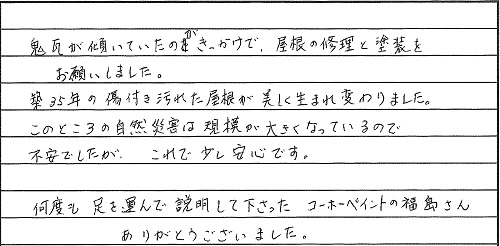 鬼瓦が傾いていたのがきっかけで、屋根の修理と塗装を
お願いしました。
築35年の傷付き汚れた屋根が美しく生まれ変わりました。
このところの自然災害は規模が大きくなっているので
不安でしたが、これで少し安心です。
何度も足を運んで説明して下さったコーホーペイントの福島さん
ありがとうございました。